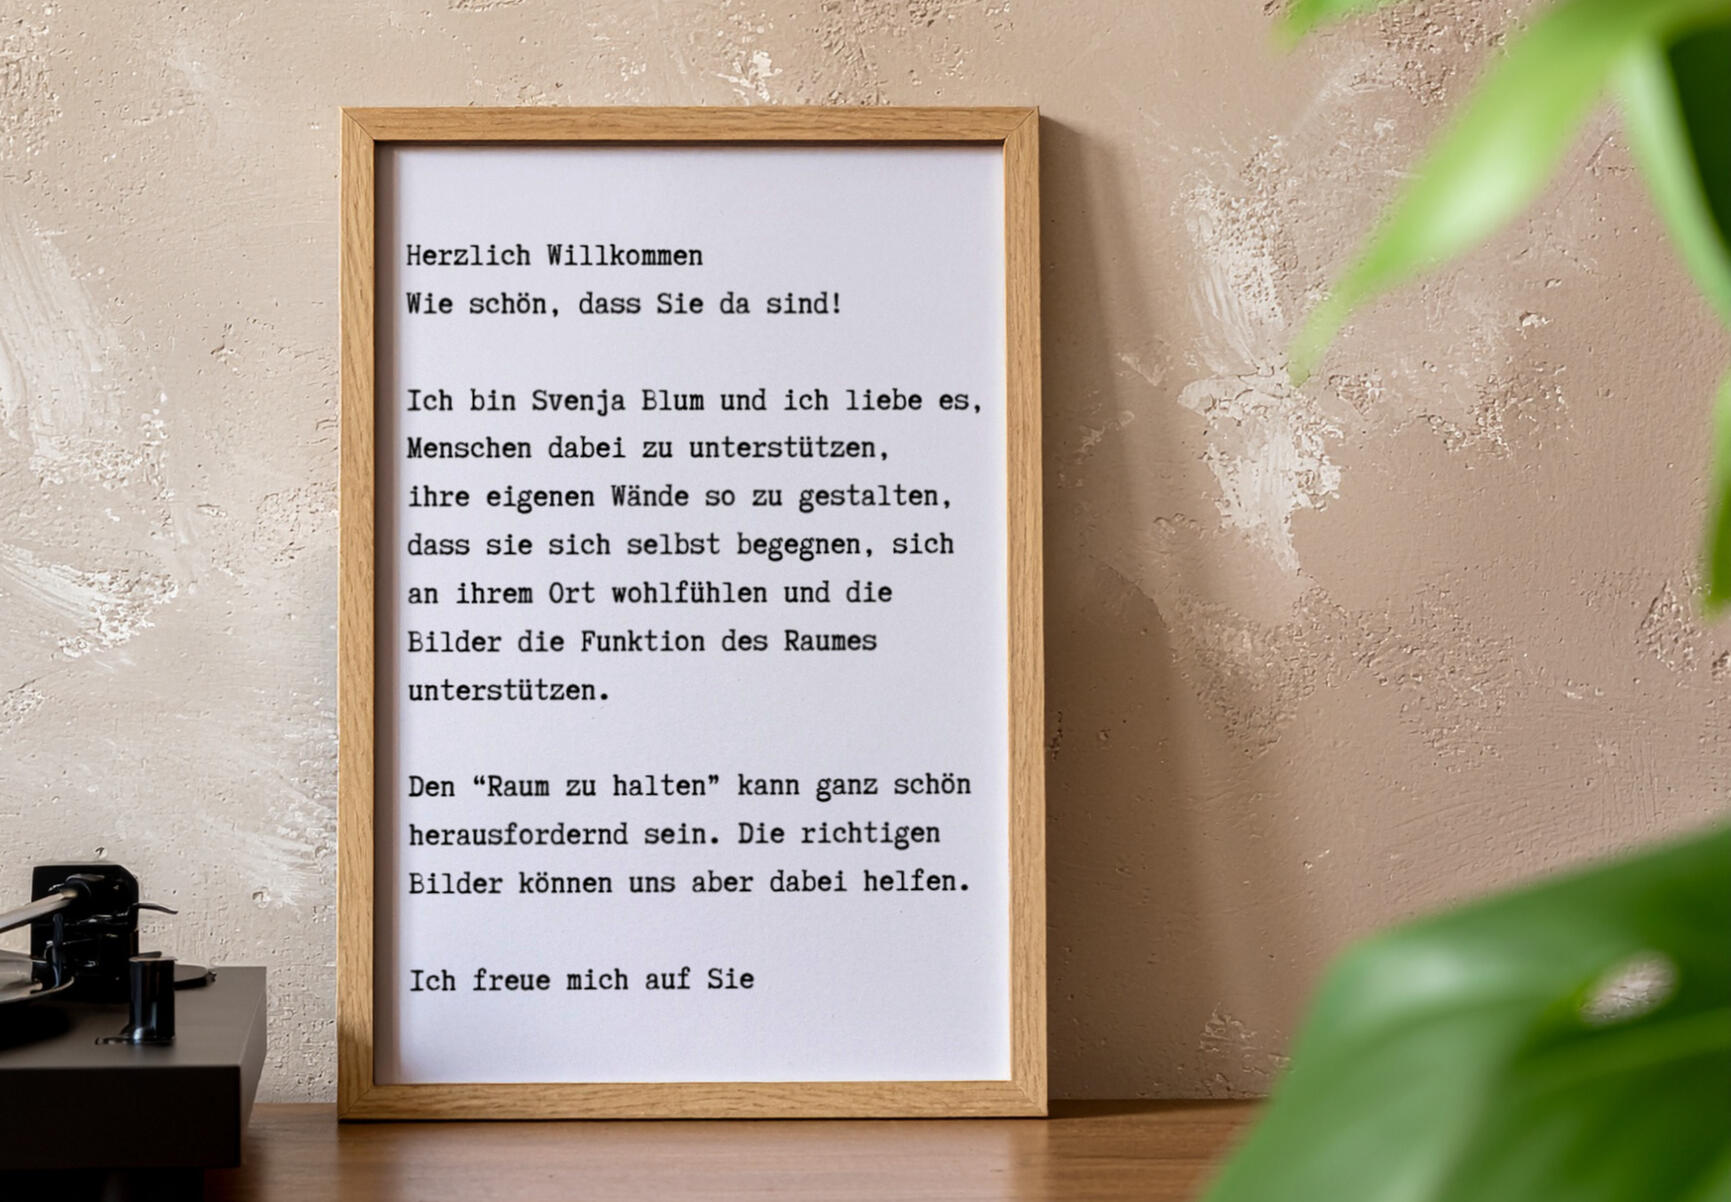 Herzlich Willkommen
Wie schön, dass Sie da sind!
Ich bin Svenja Blum und ich liebe es,
Menschen dabei zu unterstützen,
ihre eigenen Wände so zu gestalten,
dass sie sich selbst begegnen, sich
an ihrem Ort wohlfühlen und die
Bilder die Funktion des Raumes
unterstützen.
Den “Raum zu halten” kann ganz schön
herausfordernd sein. Die richtigen
Bilder können uns aber dabei helfen.
Ich freue mich auf Sie